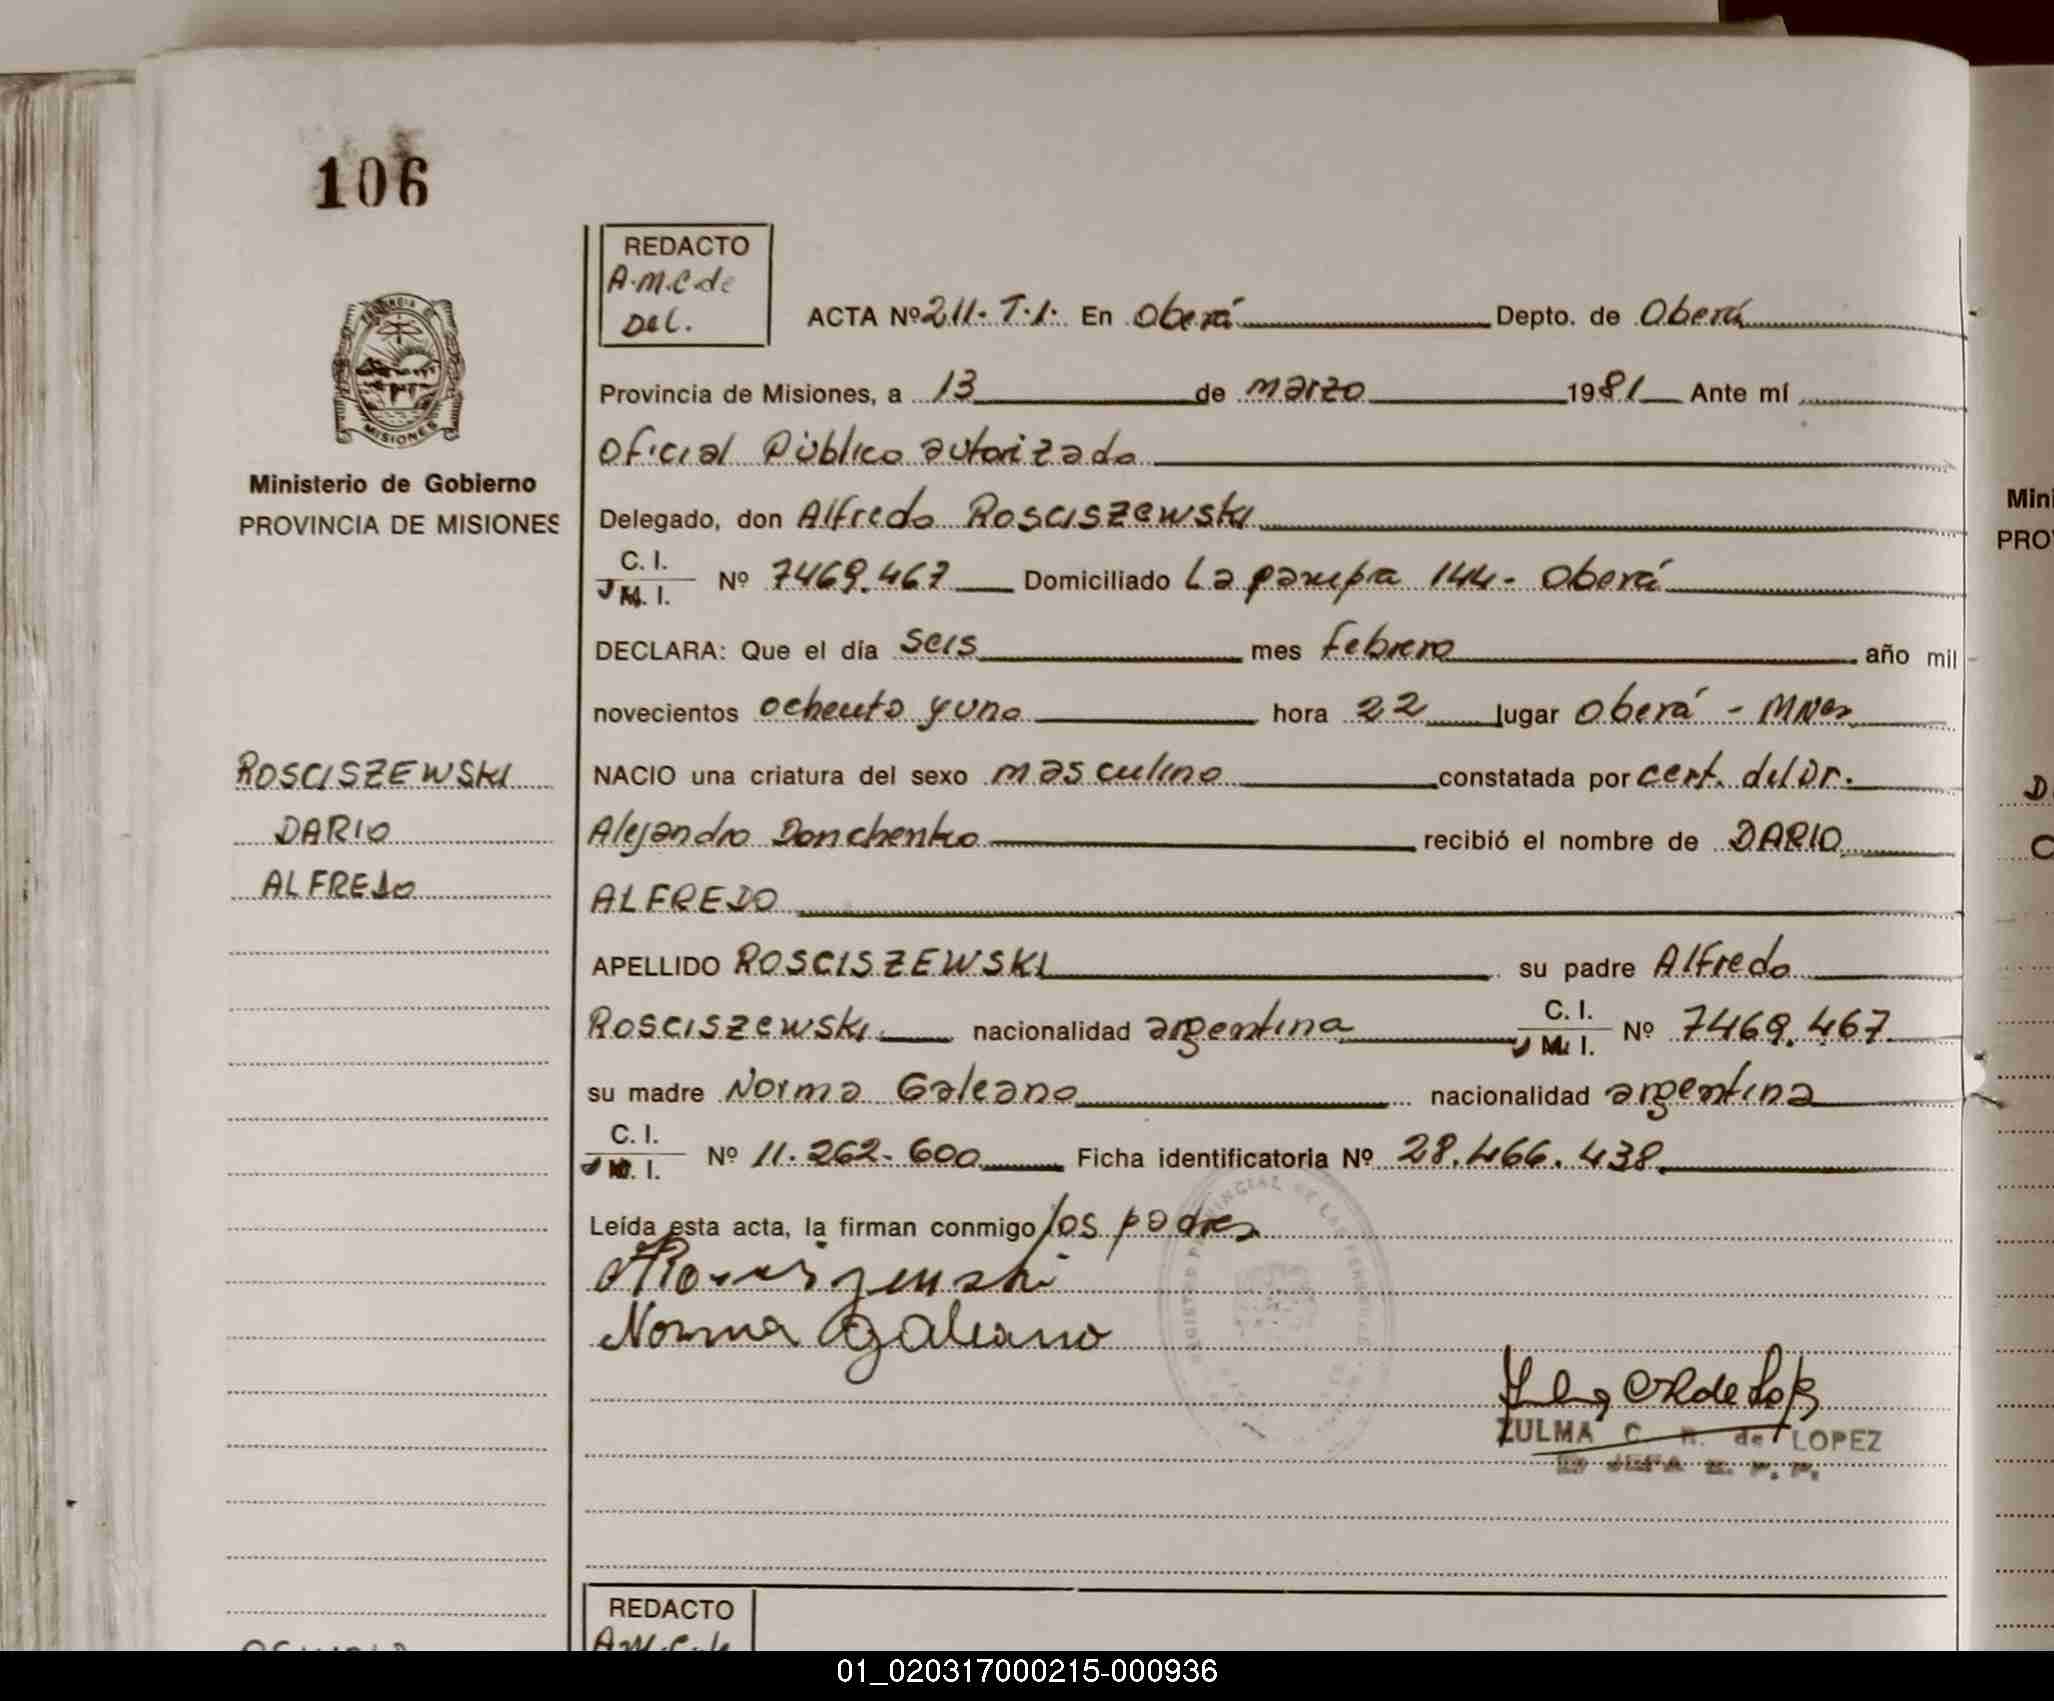 106
REDACTO
A.M.C. de
Del.
ACTA Nº 211-T.1. En Oberá Depto. de Oberá
Provincia de Misiones, a 13 de marzo 1981 Ante mí
Oficial Público autorizado
Delegado, don Alfredo Rosciszewski
C. I.
M. I.
Nº 7469.467 Domiciliado La pampa 144- Oberá
DECLARA: Que el día seis mes febrero año mil
novecientos ochenta y uno hora 22 lugar Oberá - Mnes
NACIO una criatura del sexo masculino constatada por cert. del Dr.
Alejandro Donchenko recibió el nombre de DARIO
ALFREDO
APELLIDO ROSCISZEWSKI su padre Alfredo
Rosciszewski nacionalidad argentina C. I. M. I. Nº 7469.467
su madre Norma Galeano nacionalidad argentina
C. I.
M. I.
Nº 11.262.600 Ficha identificatoria Nº 28.466.438
Leída esta acta, la firman conmigo los padres
Norma Galeano
ZULMA C. R. de LOPEZ
JEFA
REDACTO
A.M.C. de
PROVINCIA
MISIONES
Ministerio de Gobierno
PROVINCIA DE MISIONES
ROSCISZEWSKI
DARIO
ALFREDO
Mini
PRO
01_020317000215-000936